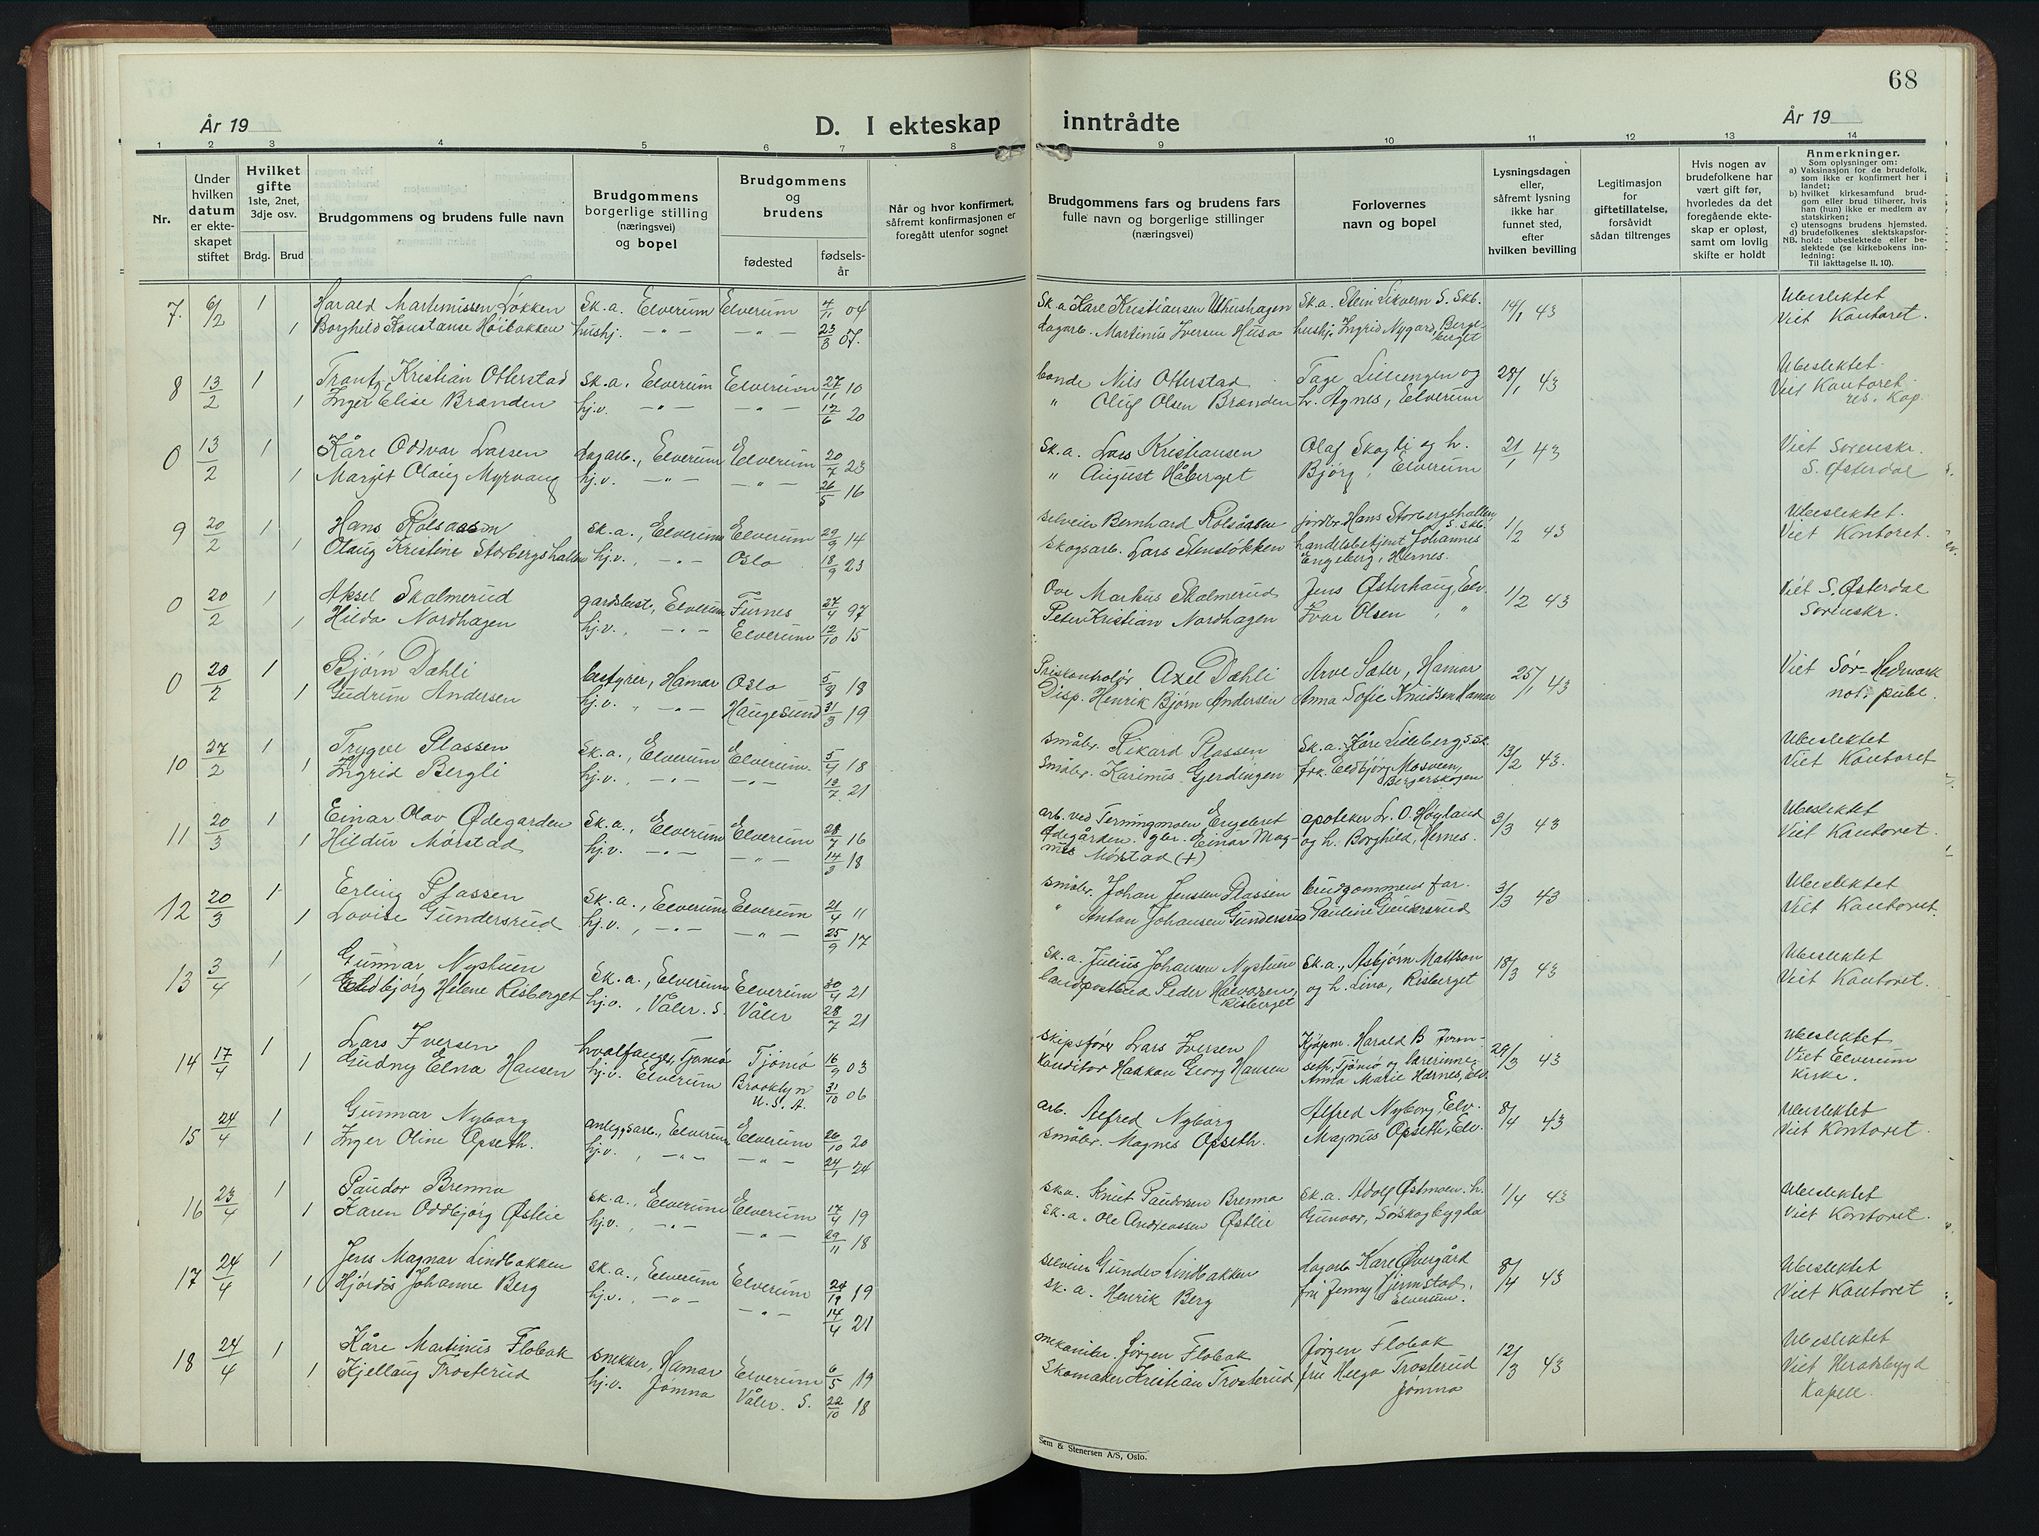 68
År 19
D. I ekteskap inntrådte
År 19
1 2 3 4 5 6 7 8 9 10 11 12 13 14
Nr.
Under hvilken datum er ekteskapet stiftet
Hvilket gifte 1ste, 2net, 3dje osv.
Brdg. Brud
Brudgommens og brudens fulle navn
Brudgommens borgerlige stilling (næringsvei) og bopel
Brudgommens og brudens
fødested
fødselsår
Når og hvor konfirmert, såfremt konfirmasjonen er foregått utenfor sognet
Brudgommens fars og brudens fars fulle navn og borgerlige stillinger (næringsvei)
Forlovernes navn og bopel
Lysningsdagen eller, såfremt lysning ikke har funnet sted, efter hvilken bevilling
Legitimasjon for giftetillatelse, forsåvidt sådan tiltrenges
Hvis nogen av brudefolkene har vært gift før, hvorledes da det foregående ekteskap er opløst, samt om lovlig skifte er holdt
Anmerkninger.
Som oplysninger om:
a) Vaksinasjon for de brudefolk, som ikke er konfirmert her i landet;
b) hvilket kirkesamfund brudgom eller brud tilhører, hvis han (hun) ikke er medlem av statskirken;
c) utensogns brudens hjemsted.
d) brudefolkenes slektskapsforhold: ubeslektede eller beslektede (se kirkebokens innledning:
NB.
Til iakttagelse II. 10).
7. 6/2 1 Harald Martinussen Løkken Sk.a. Elverum Elverum 4/11 04 Sk.a Kåre Kristiansen Uthushagen Sk.a. Stein Likvern S. Skb. 14/1 43 Ubeslektet
1 Borghild Konstanse Høibakken hushj. -"- -"- 23/3 07. dagarb. Martinus Iversen Husa hushj. Ingrid Nygard, Bergeberget Viet Kontoret.
8 13/2 1 Kristian Otterstad Sk.a., Elverum Elverum 27/11 10 bonde Nils Otterstad Tage Lillengen og 28/1 43 Ubeslektet
1 Inger Elise Brænden hj.v. -"- -"- 12/6 20 " Oluf Olsen Brænden h. Agnes, Elverum Viet Kontoret. res. kap.
0 13/2 1 Kåre Oddvar Larsen dagarb., Elverum Elverum 20/7 23 Sk.a. Lars Kristiansen Olaf Skogli og h. 21/1 43 Viet Sorenskr.
1 Margit Olaug Myrvang hj.v. -"- -"- 26/5 16 " August Håberget Bjørg, Elverum S. Østerdal
9 20/2 1 Hans Rolsaasen Sk.a., Elverum Elverum 29/9 14 selveier Bernhard Rolsåsen jordbr. Hans Storbergshallen S. Skb. 1/2 43 Ubeslektet.
1 Olaug Kristine Storbergshallen hj.v., -"- Oslo 18/9 23 skogsarb. Lars Stensløkken handelsbetjent Johannes Engeberg, Hernes. Viet Kontoret.
0 20/2 1 Aksel Skalmerud gardsbest., Elverum Furnes 27/4 97 Ove Markus Skalmerud Jens Østerhaug, Elv. 1/2 43 Viet S. Østerdal
1 Hilda Nordhagen hj.v., -"- Elverum 12/10 15 Peter Kristian Nordhagen Ivar Olsen " Sorenskr.
0 20/2 1 Bjørn Dæhli bestyrer, Hamar Oslo 5/8 18 Priskontrolør Axel Dæhli Arve Sæter, Hamar 25/1 43 Viet Sør-Hedmark
1 Gudrun Andersen hj.v. " -"- Haugesund 31/3 19 Disp. Henrik Bjørn Andersen Anna Sofie Knudsen Hamar not. publ.
10 27/2 1 Trygve Plassen Sk.a., Elverum Elverum. 5/4 18 småbr. Rikard Plassen Sk.a. Kåre Lilleberg S.Sk. 13/2 43. Ubeslektet
1 Ingrid Bergli hj.v. -"- -"- 13/7 21 småbr. Karinus Gjerdingen frk. Eldbjørg Mosveen, Bergerskogen Viet Kontoret
11 20/3 1 Einar Olav Ødegarden Sk.a., Elverum Elverum 28/7 16 arb. ved Terningmoen Engebret apoteker L. O. Høyland 3/3 43 Ubeslektet
1 Hildur Mørstad hj.v. -"- -"- 14/3 18 Ødegården. gbr. Einar Magnus Mørstad (+) og h. Borghild, Hernes. Viet Kontoret.
12 20/3 1 Erling Plassen Sk.a., Elverum Elverum 21/4 11 småbr. Johan Jenssen Plassen brudgommens far. 3/3 43 Ubeslektet
1 Lovise Gundersrud hj.v., -"- -"- 25/9 17 " Anton Johansen Gundersrud Pauline Gundersrud Viet Kontoret.
13 3/4 1 Gunnar Nystuen Sk.a., Elverum Elverum 30/4 21 Sk.a. Julius Johansen Nystuen Sk.a., Asbjørn Mattson 18/3 43 Ubeslektet
1 Eldbjørg Helene Risberget hj.v., Våler. S. Våler 28/7 21 landpostbud Peder Halvorsen, Risberget og h. Lina, Risberget Viet Kontoret.
14 17/4 1 Lars Iversen hvalfanger, Tjømø Tjømø 16/9 03 skipsfører Lars Iversen Kjøpm. Harald B. 29/3 43 Ubeslektet
1 Gudny Elna Hansen hj.v. Elverum Brooklyn U.S.A. 31/10 06 konditor Haakon Georg Hansen Tjømø og lærerinne Anna Marie Hernes, Elv. Viet Elverum Kirke.
15 24/4 1 Gunnar Nyborg anleggsarb., Elverum Elverum 26/10 20 arb. Alfred Nyborg Alfred Nyborg, Elv. 8/4 43 Ubeslektet
1 Inger Oline Opseth. hj.v., -"- -"- 24/1 24 småbr. Magnus Opseth. Magnus Opseth, Elv. Viet Kontoret.
16 23/4 1 Paudor Brenna Sk.a., Elverum Elverum 17/4 19 Sk.a. Knut Paudorsen Brenna Sk.a. Adolf Østmoen. h. 1/4 43 Ubeslektet
1 Karen Oddbjørg Østlie hj.v., -"- -"- 29/11 18 Sk.a. Ole Andreassen Østlie Gunvor, Sørskogbygda Viet Kontoret.
17 24/4 1 Jens Magnar Lindbakken Sk.a., Elverum Elverum 24/12 19 selveier Gunder Lindbakken dagarb Kåre Øvergård 8/4 43 Ubeslektet
1 Hjørdis Johanne Berg hj.v., -"- -"- 14/4 21 Sk.a. Henrik Berg fru Jenny Hjermstad, Elverum. Viet Kontoret
18 24/4 1 Kåre Martinus Flobak snekker, Hamar Elverum 6/5 19 mekaniker. Jørgen Flobak Jørgen Flobak 12/3 43 Ubeslektet
1 Kjellaug Trosterud hj.v. Jømna Våler. S. 22/10 18 skomaker Kristian Trosterud fru Helga Trosterud Jømna Viet Heradsbygd Kapell.
Sem & Stenersen A/S, Oslo.